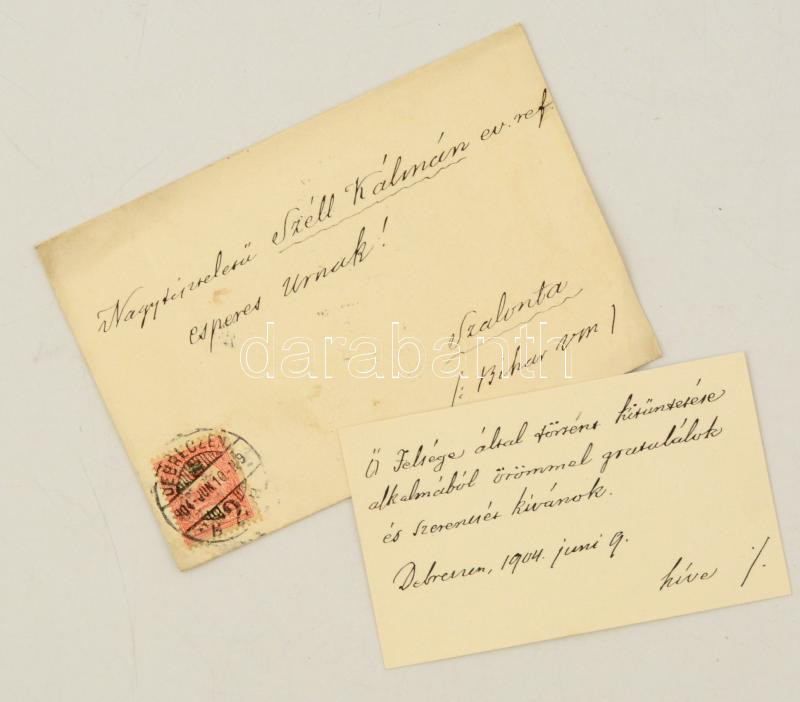 Nagytiszteletű Széll Kálmán ev. ref.
esperes Urnak!
Szalonta
/: Bihar vm /
darabanth
DEBRECZEN
904 JUN 10
Ő Felsége által történt kitüntetése
alkalmából örömmel gratulálok
és szerencsét kívánok.
Debreczen, 1904. juni 9.
híve /.